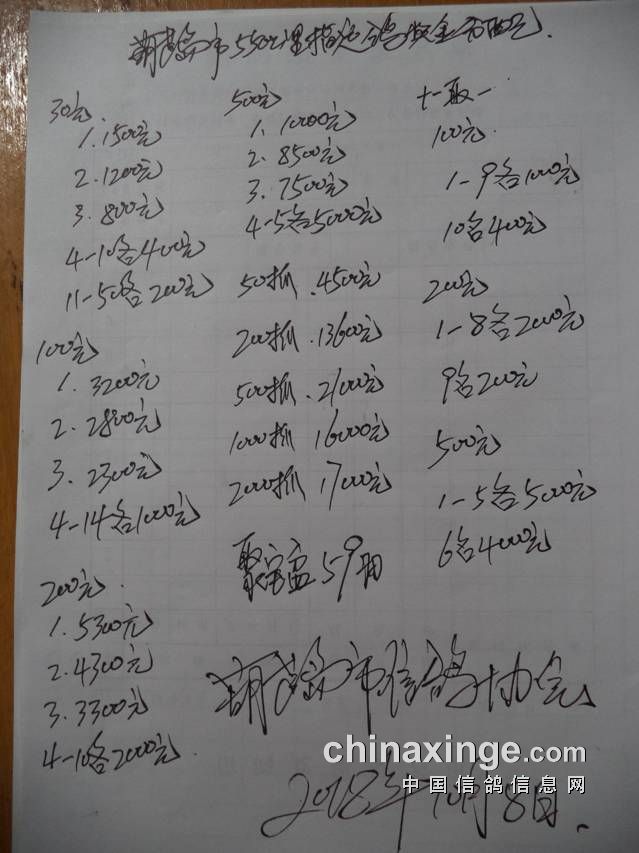 葫芦岛市550公里指定鸽奖金分配
30元
1.1500元
2.1200元
3.800元
4-10名400元
11-50名200元
100元
1.3200元
2.2800元
3.2300元
4-14名1000元
200元.
1.5300元
2.4300元
3.3300元
4-10名2000元.
500元
1.10000元
2.8500元
3.7500元
4-5名5000元
50抓.4500元
200抓.13600元
500抓.21000元
1000抓16000元
2000抓17000元
聚宝盆59羽
十取一
100元.
1-9名1000元
10名400元
200元
1-8名2000元
9名200元
500元
1-5名5000元
6名4000元
葫芦岛市信鸽协会
2018年10月8日.
chinaxinge.com
中国信鸽信息网